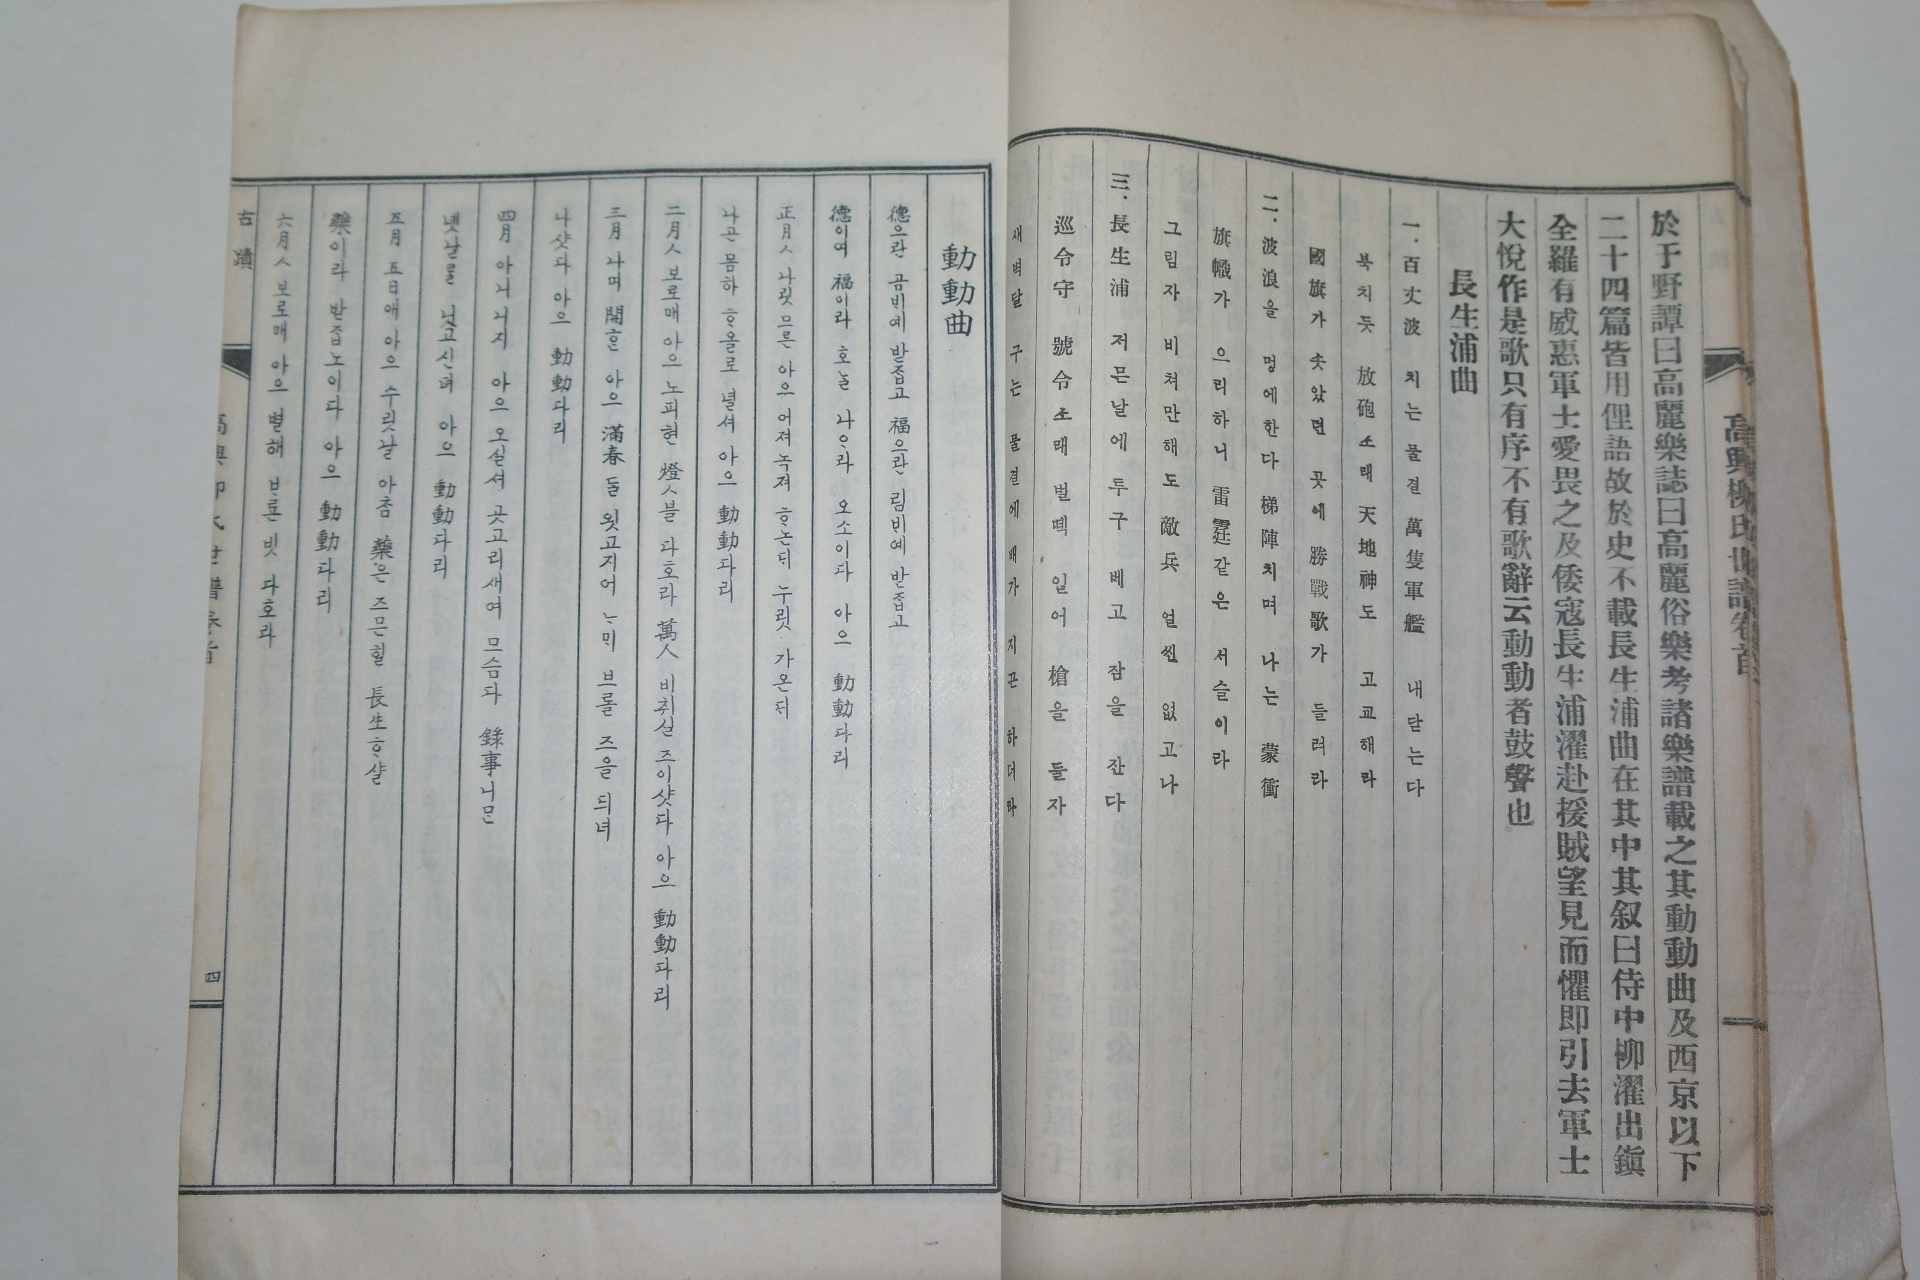 高興柳氏世譜卷首
於于野譚曰高麗樂誌曰高麗俗樂考諸樂譜載之其動動曲及西京以下
二十四篇皆用俚語故於史不載長生浦曲在其中其叙曰侍中柳濯出鎭
全羅有威惠軍士愛畏之及倭寇長生浦濯赴援賊望見而懼即引去軍士
大悅作是歌只有序不有歌辭云動動者鼓聲也
長生浦曲
一.百丈波 치는 물결 萬隻軍艦 내닫는다
북치듯 放砲소래 天地神도 고교해라
國旗가 솟았던 곳에 勝戰歌가 들려라
二.波浪을 멍에한다 梯陣치며 나는 蒙衝
旗幟가 으리하니 雷霆같은 서슬이라
그림자 비쳐만해도 敵兵 얼씬 없고나
三.長生浦 저믄날에 투구 베고 잠을 잔다
巡令守 號令소래 벌떡 일어 槍을 들자
새벽달 구는 물결에 배가 지끈 하더라
動動曲
德으란 곰비예 받줍고 福으란 림비예 받줍고
德이여 福이라 호ᄂᆞᆯ 나ᅀᆞ라 오소이다 아으 動動다리
正月ㅅ 나릿 므른 아으 어져 녹져 ᄒᆞ논ᄃᆡ 누릿 가온ᄃᆡ
나곤 몸하 ᄒᆞ올로 녈셔 아으 動動다리
二月ㅅ 보로매 아으 노피현 燈ㅅ블 다호라 萬人 비취실 즈ᅀᅵ샷다 아으 動動다리
三月 나며 開ᄒᆞᆫ 아으 滿春 ᄃᆞᆯ 욋고지여 ᄂᆞᄆᆡ 브롤 즈을 디녀
나샷다 아으 動動다리
四月 아니 니지 아으 오실셔 곳고리새여 므슴다 錄事니ᄆᆞᆫ
녯날ᄅᆞᆯ 닛고신뎌 아으 動動다리
五月 五日애 아으 수릿날 아ᄎᆞᆷ 藥은 즈믄힐 長生ᄒᆞ샬
藥이라 받ᄌᆞᆸ노이다 아으 動動다리
六月ㅅ 보로매 아으 별해 ᄇᆞ론 빗 다호라
古蹟
高興柳氏世譜卷首
四